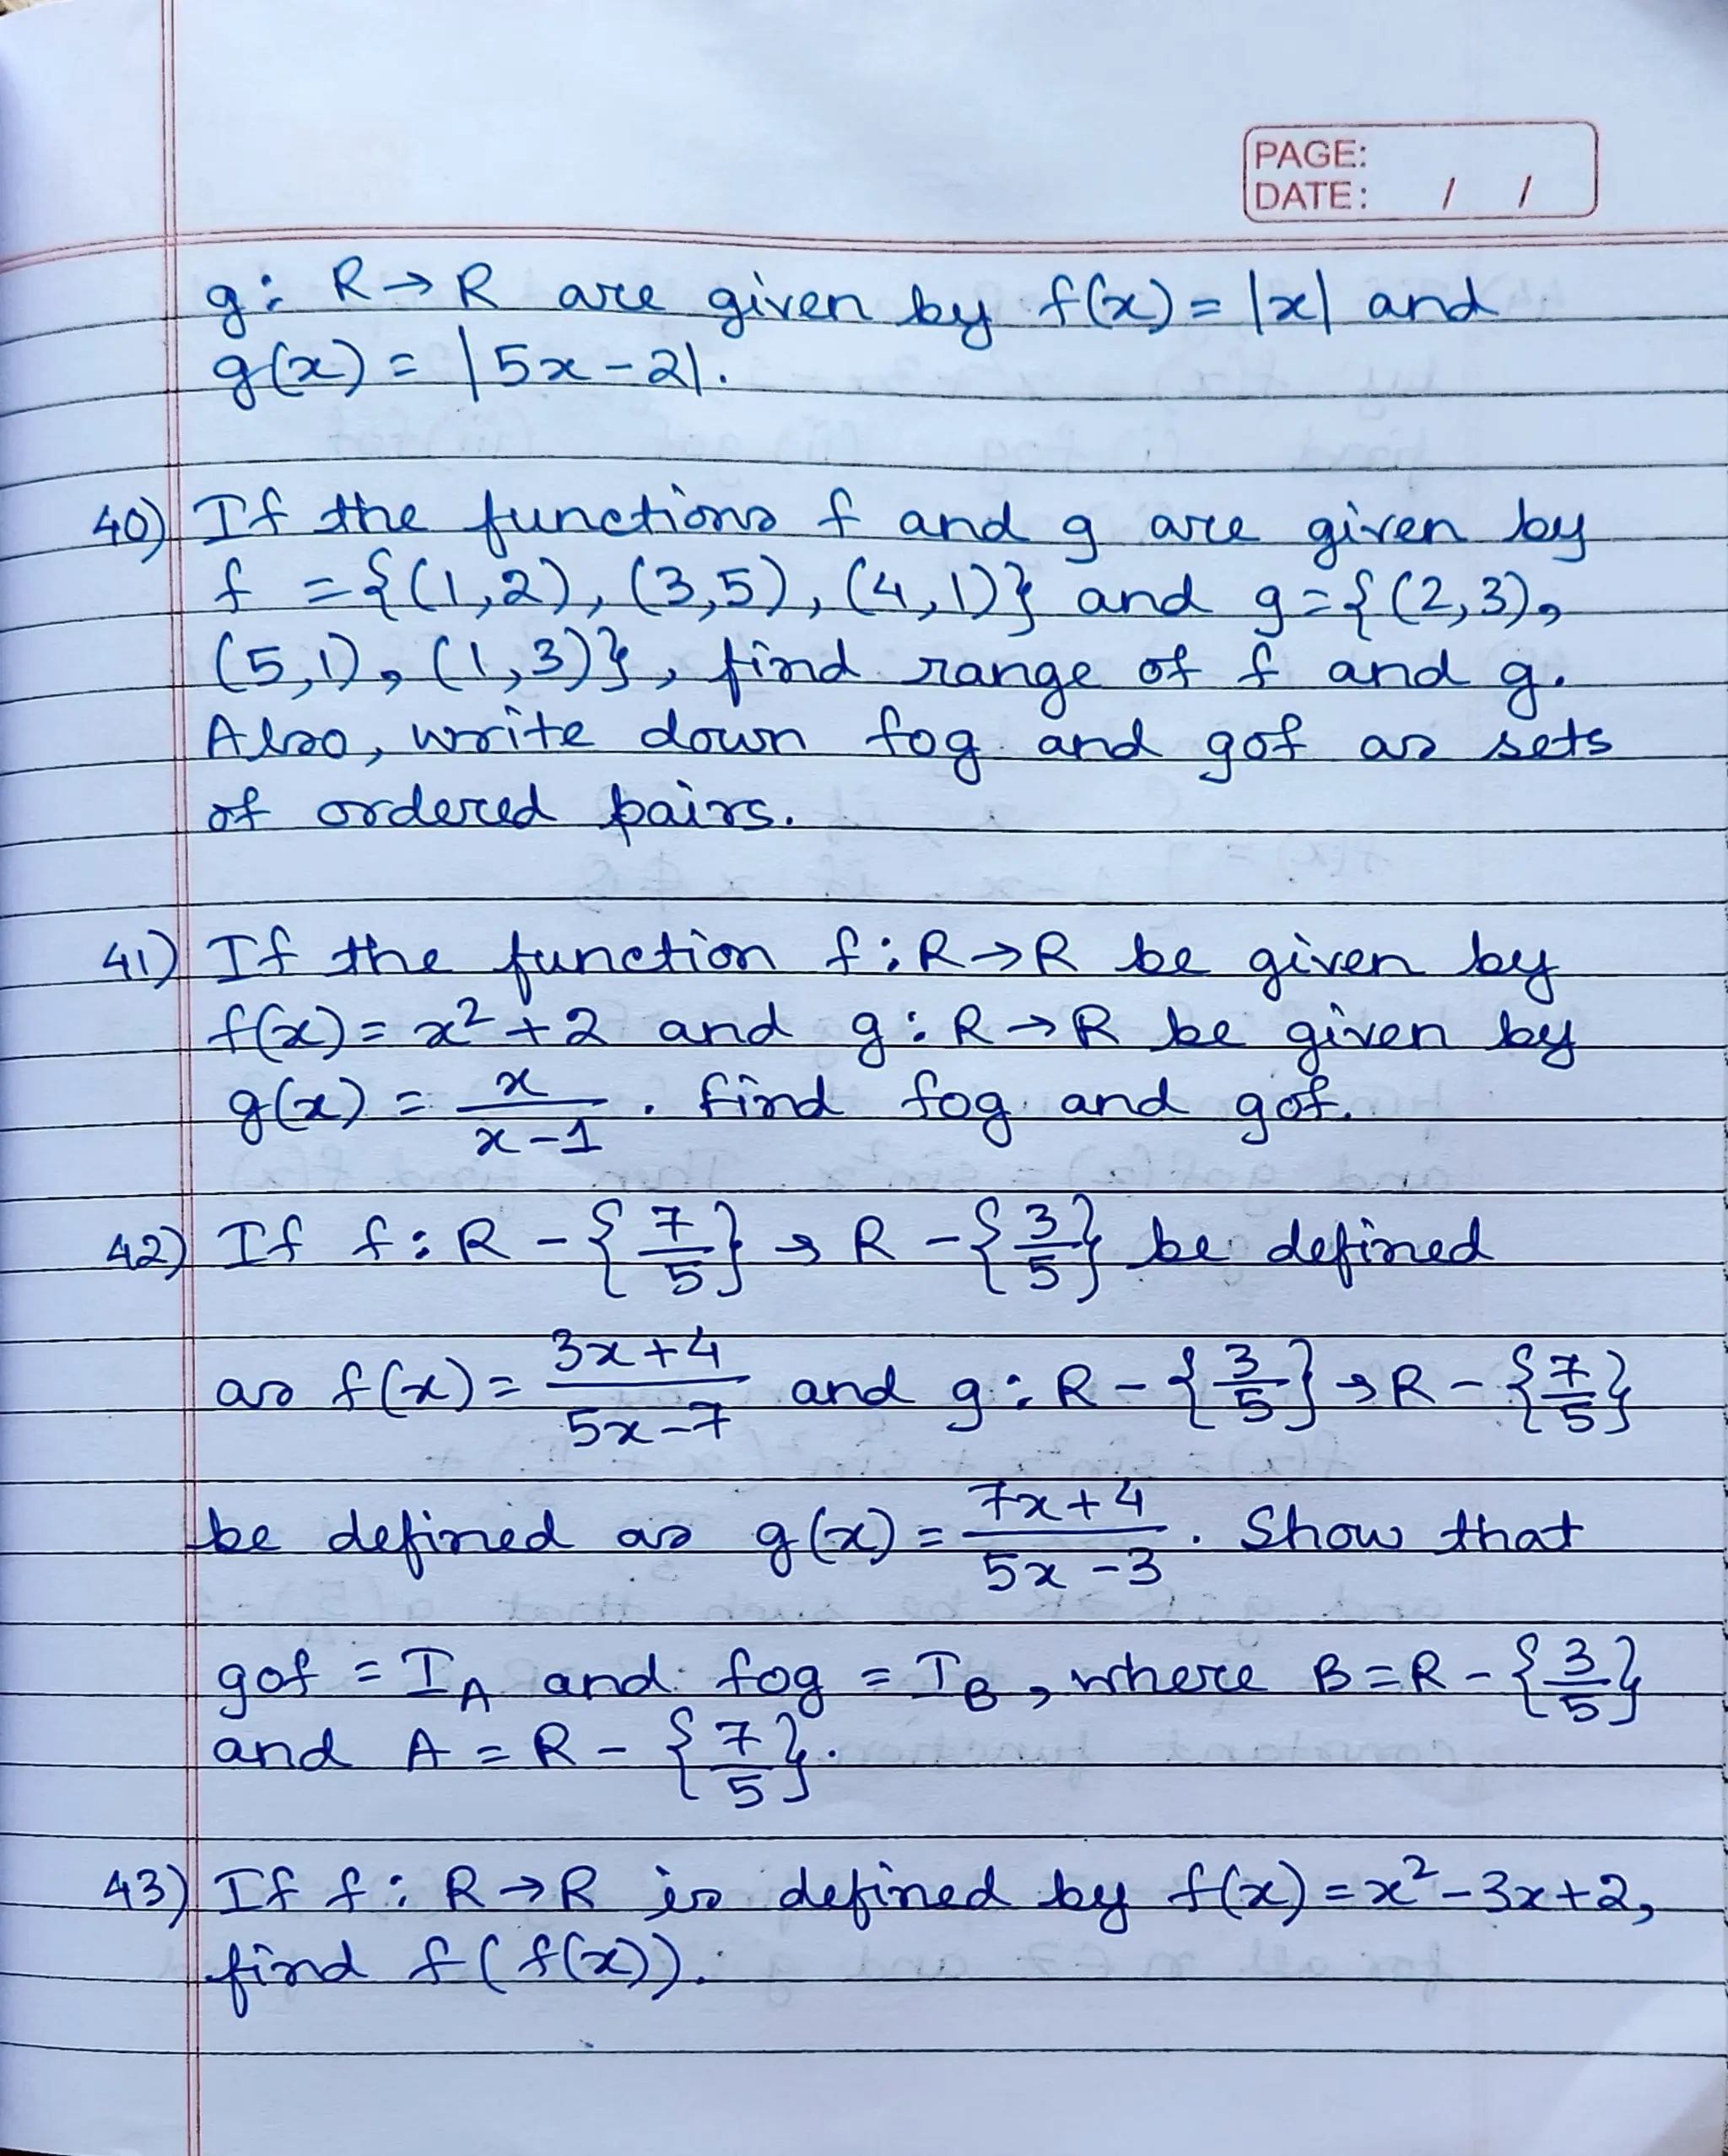 PAGE:
DATE: / /
g: R→R are given by f(x) = |x| and
g(x) = |5x-2|.
40) If the functions f and g are given by
f = {(1,2), (3,5), (4,1)} and g={(2,3),
(5,1), (1,3)}, find range of f and g.
Also, write down fog and gof as sets
of ordered pairs.
41) If the function f:R→R be given by
f(x) = x²+2 and g:R→R be given by
g(x) = x/(x-1). find fog and gof.
42) If f: R-{7/5} → R-{3/5} be defined
as f(x) = (3x+4)/(5x-7) and g: R-{3/5} → R-{7/5}
be defined as g(x) = (7x+4)/(5x-3). Show that
gof = I_A and fog = I_B, where B=R-{3/5}
and A = R-{7/5}.
43) If f: R→R is defined by f(x) = x²-3x+2,
find f(f(x)).